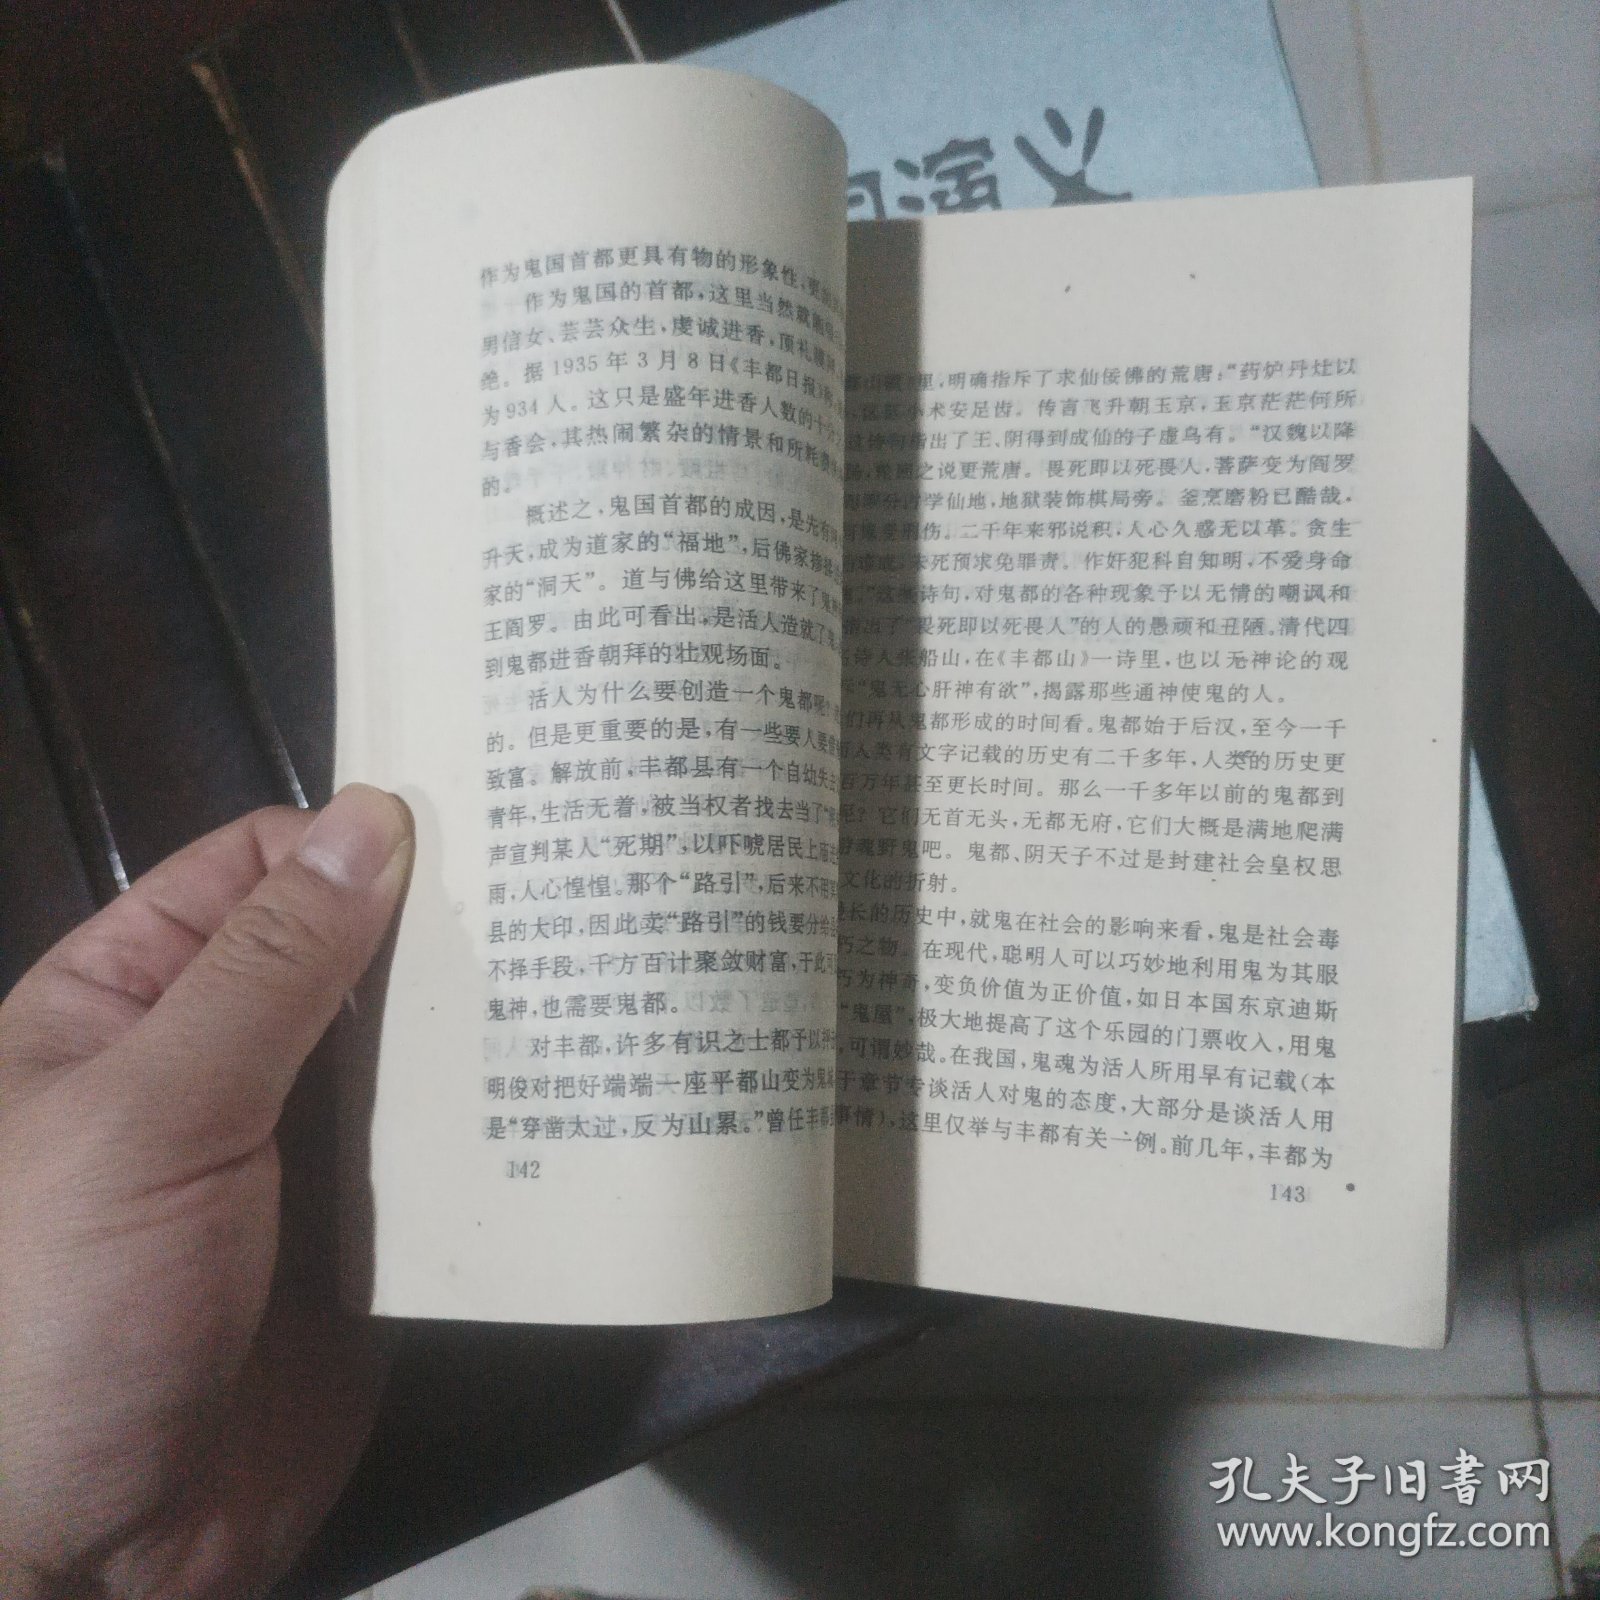 演义
作为鬼国首都更具有物的形象性，更
作为鬼国的首都，这里当然就
男信女、芸芸众生，虔诚进香，顶礼膜
绝。据1935年3月8日《丰都日报》
为934人。这只是盛年进香人数的十分
与香会，其热闹繁杂的情景和所耗费
的。
概述之，鬼国首都的成因，是先有
升天，成为道家的“福地”，后佛家
家的“洞天”。道与佛给这里带来了鬼
王阎罗。由此可看出，是活人造就了鬼
到鬼都进香朝拜的壮观场面。
活人为什么要创造一个鬼都呢？
的。但是更重要的是，有一些要人要
致富。解放前，丰都县有一个自幼失去
青年，生活无着，被当权者找去当了“
声宣判某人“死期”，以吓唬居民上庙进
雨，人心惶惶。那个“路引”，后来不用
县的大印，因此卖“路引”的钱要分给
不择手段，千方百计聚敛财富，于此可
鬼神，也需要鬼都。
对丰都，许多有识之士都予以抨
明俊对把好端端一座平都山变为鬼
是“穿凿太过，反为山累。”曾任丰都
142
里，明确指斥了求仙佞佛的荒唐：“药炉丹灶以
小术安足齿。传言飞升朝玉京，玉京茫茫何所
诗句指出了王、阴得到成仙的子虚乌有。“汉魏以降
轮回之说更荒唐。畏死即以死畏人，菩萨变为阎罗
学仙地，地狱装饰棋局旁。釜烹磨粉已酷哉，
伤。二千年来邪说积，人心久惑无以革。贪生
未死预求免罪责。作奸犯科自知明，不爱身命
。”这些诗句，对鬼都的各种现象予以无情的嘲讽和
出了“畏死即以死畏人”的人的愚顽和丑陋。清代四
诗人张船山，在《丰都山》一诗里，也以无神论的观
斥“鬼无心肝神有欲”，揭露那些通神使鬼的人。
们再从鬼都形成的时间看。鬼都始于后汉，至今一千
人类有文字记载的历史有二千多年，人类的历史更
百万年甚至更长时间。那么一千多年以前的鬼都到
呢？它们无首无头，无都无府，它们大概是满地爬满
魂野鬼吧。鬼都、阴天子不过是封建社会皇权思
文化的折射。
长的历史中，就鬼在社会的影响来看，鬼是社会毒
朽之物。在现代，聪明人可以巧妙地利用鬼为其服
朽为神奇，变负价值为正价值，如日本国东京迪斯
“鬼屋”，极大地提高了这个乐园的门票收入，用鬼
，可谓妙哉。在我国，鬼魂为活人所用早有记载（本
于章节专谈活人对鬼的态度，大部分是谈活人用
事情），这里仅举与丰都有关一例。前几年，丰都为
143
孔夫子旧书网
www.kongfz.com